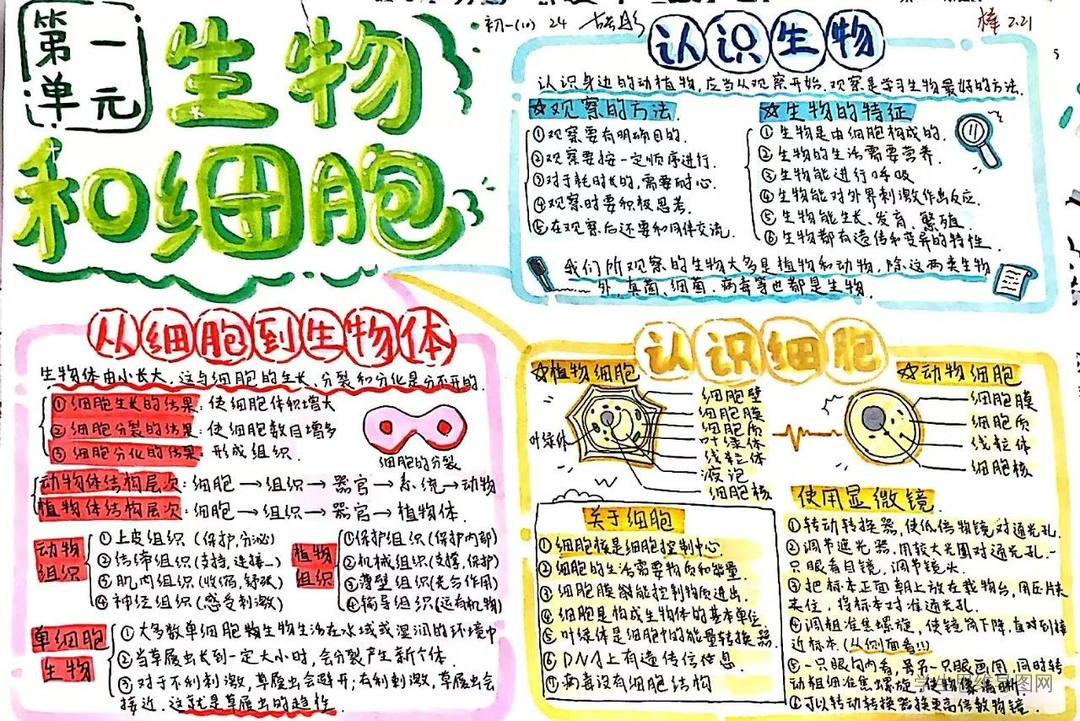 第一单元
生物和细胞
初一(10) 24
棒 2.21
认识生物
认识身边的动植物，应当从观察开始，观察是学习生物最好的方法.
☆观察的方法.
①观察要有明确目的.
②观察要按一定顺序进行.
③对于耗时长的，需要耐心.
④观察时要积极思考.
⑤在观察后还要和同伴交流.
☆生物的特征
①生物是由细胞构成的.
②生物的生活需要营养.
③生物能进行呼吸
④生物能对外界刺激作出反应.
⑤生物能生长、发育、繁殖.
⑥生物都有遗传和变异的特性.
我们所观察的生物大多是植物和动物，除这两类生物
外，真菌、细菌、病毒等也都是生物.
从细胞到生物体
生物体由小长大，这与细胞的生长、分裂和分化是分不开的.
①细胞生长的结果：使细胞体积增大
②细胞分裂的结果：使细胞数目增多
③细胞分化的结果：形成组织.
细胞的分裂
动物体结构层次：细胞→组织→器官→系统→动物
植物体结构层次：细胞→组织→器官→植物体.
动物组织
①上皮组织(保护,分泌)
②结缔组织(支持,连接…)
③肌肉组织(收缩,舒张)
④神经组织(感受刺激)
植物组织
①保护组织(保护内部)
②机械组织(支撑,保护)
③薄壁组织(光合作用)
④输导组织(运有机物)
单细胞生物
①大多数单细胞生物生活在水域或湿润的环境中
②当草履虫长到一定大小时，会分裂产生新个体.
③对于不利刺激，草履虫会避开；有利刺激，草履虫会
接近.这就是草履虫的趋性.
认识细胞
☆植物细胞
叶绿体
细胞壁
细胞膜
细胞质
叶绿体
线粒体
液泡
细胞核
☆动物细胞
细胞膜
细胞质
线粒体
细胞核
关于细胞
①细胞核是细胞控制中心.
②细胞的生活需要物质和能量.
③细胞膜能控制物质进出.
④细胞是构成生物体的基本单位
⑤叶绿体是细胞中的能量转换器.
⑥DNA上有遗传信息.
⑦病毒没有细胞结构
使用显微镜
①转动转换器，使低倍物镜对通光孔.
②调节遮光器，用较大光圈对通光孔.一
只眼看目镜，调节镜头.
③把标本正面朝上放在载物台，用压片夹
夹住，将标本对准通光孔.
④调粗准焦螺旋，使镜筒下降，直对到接
近标本(从侧面看!!!)
⑤一只眼向内看，另一只眼画图，同时转
动粗细准焦螺旋，使物像清晰.
⑥可以转动转换器换更高倍数物镜.
学生思维导图网